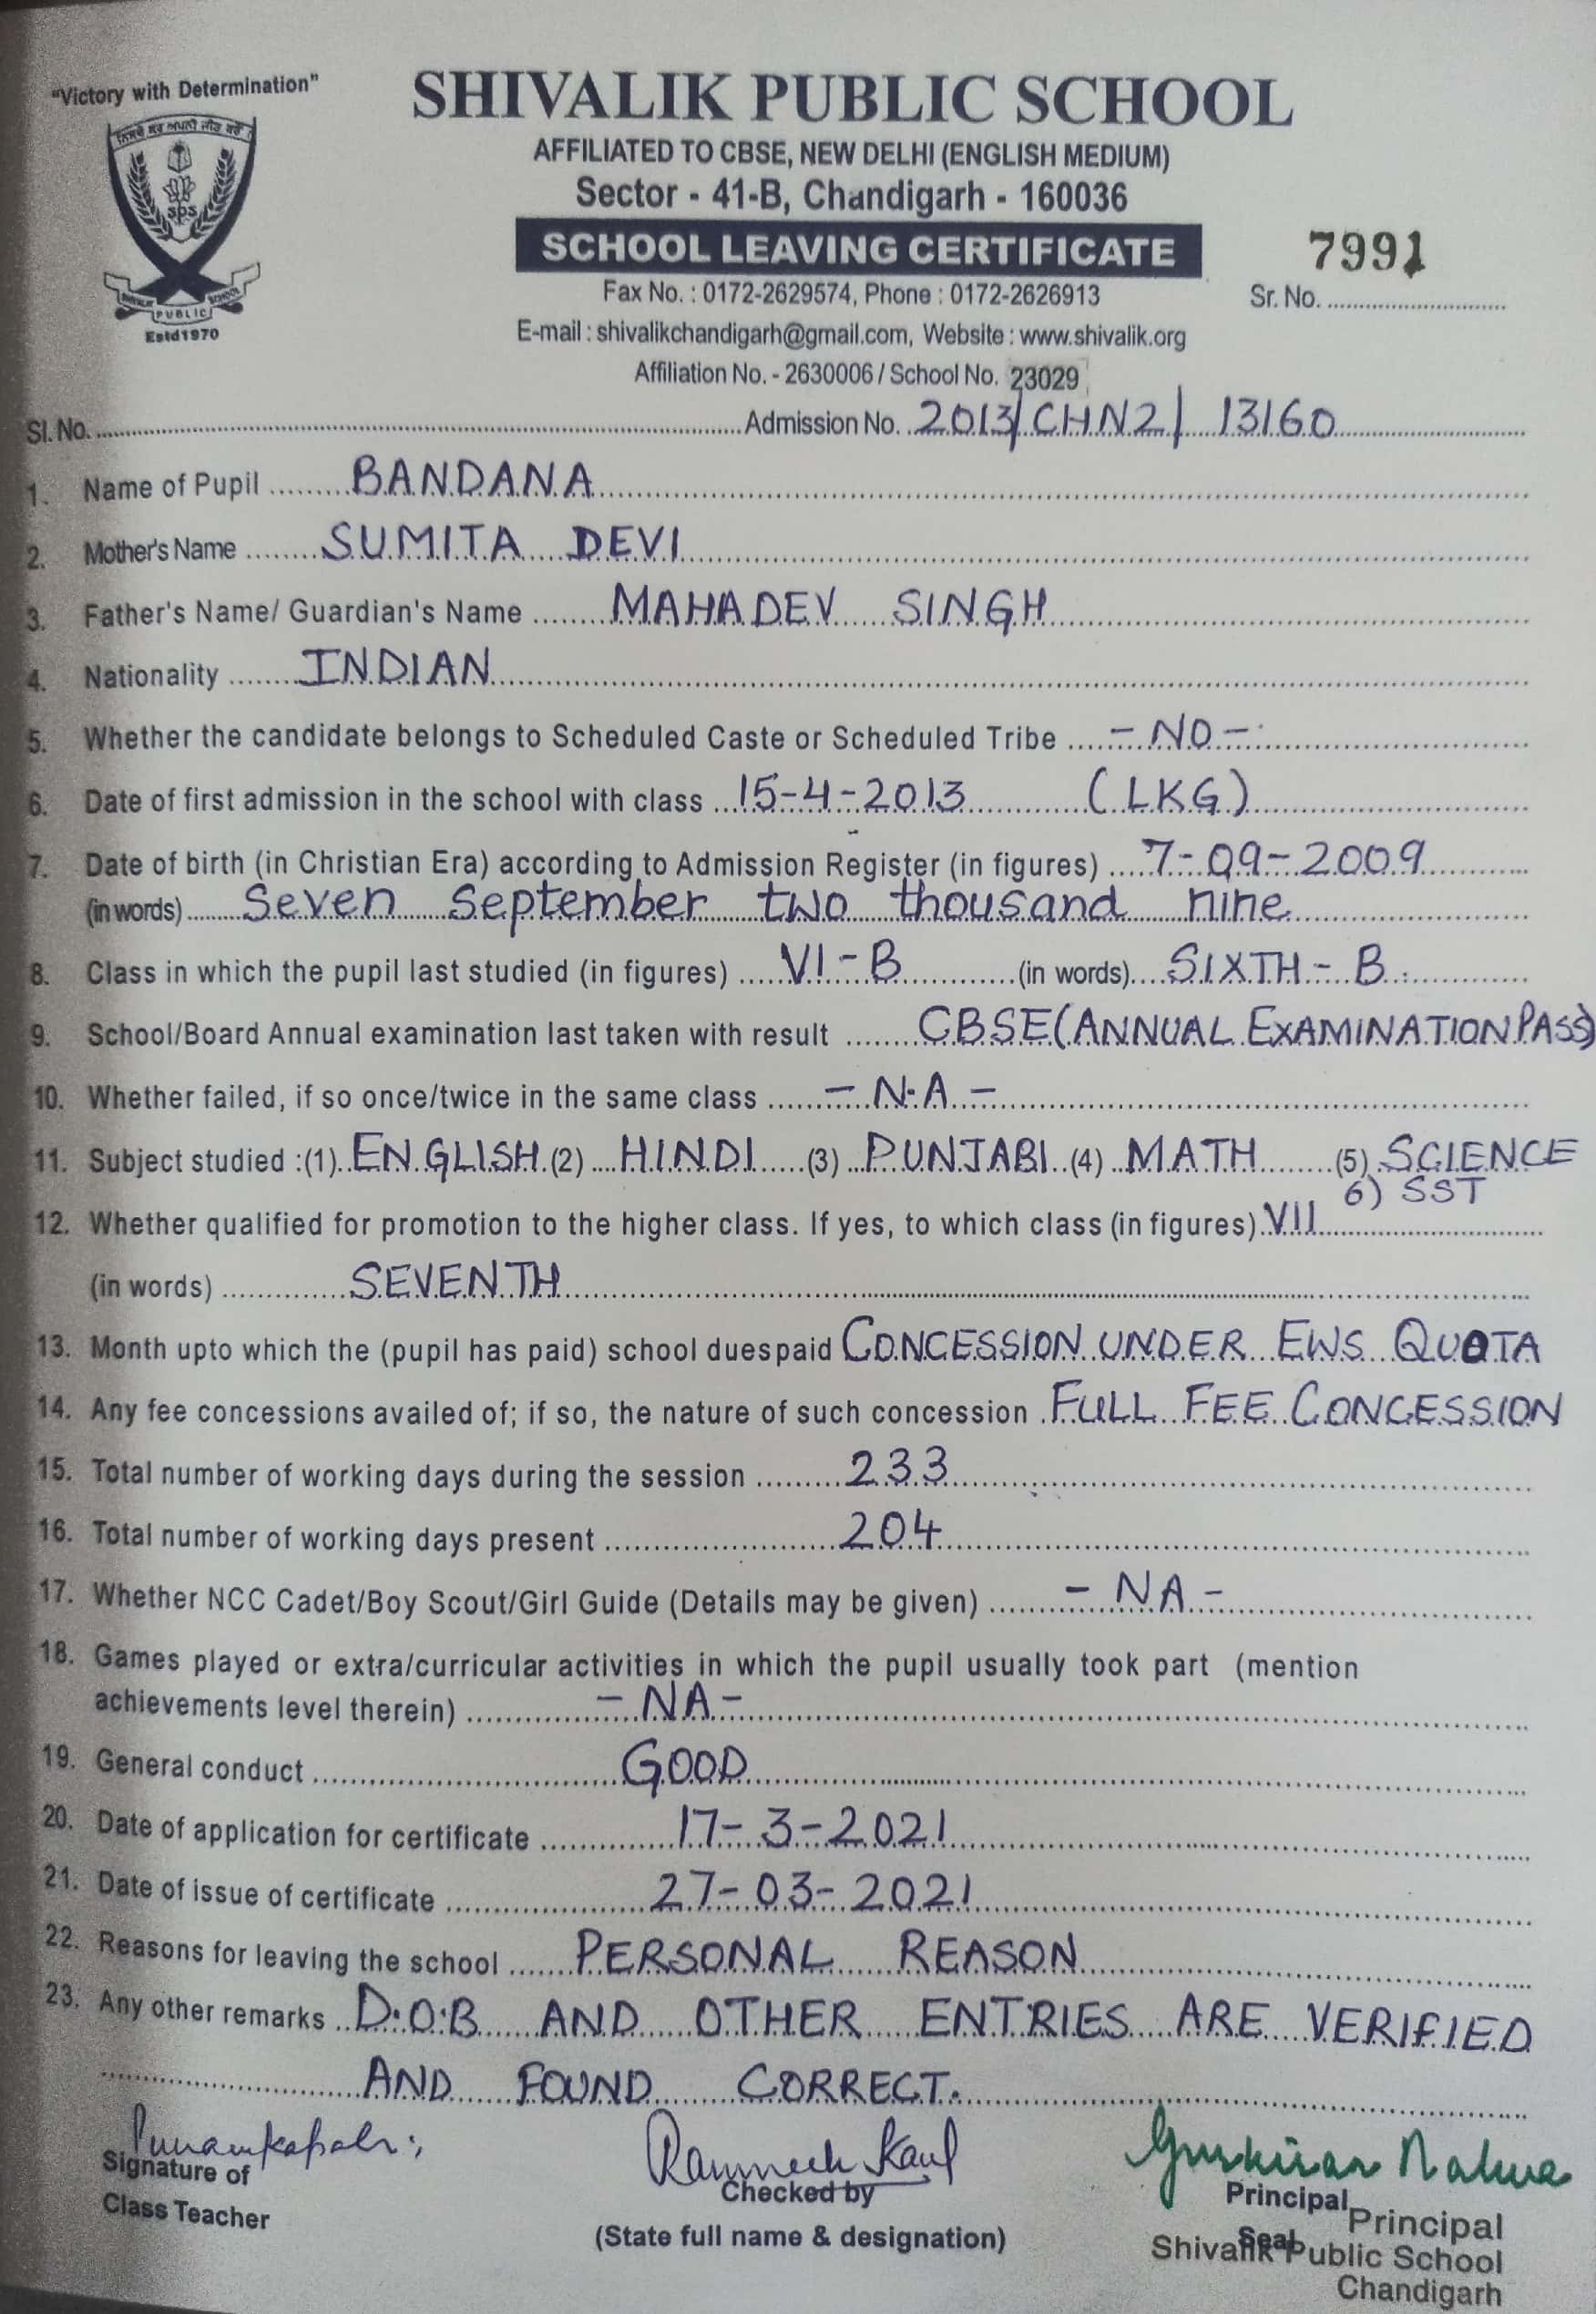 "Victory with Determination"
SHIVALIK PUBLIC SCHOOL
AFFILIATED TO CBSE, NEW DELHI (ENGLISH MEDIUM)
Sector - 41-B, Chandigarh - 160036
SCHOOL LEAVING CERTIFICATE
7991
Fax No. : 0172-2629574, Phone : 0172-2626913
Sr. No.
SPS
SHIVALIK PUBLIC SCHOOL
Estd1970
E-mail : shivalikchandigarh@gmail.com, Website : www.shivalik.org
Affiliation No. - 2630006 / School No. 23029
Sl. No. Admission No. 2013/CHN2/ 13160
1. Name of Pupil BANDANA
2. Mother's Name SUMITA DEVI
3. Father's Name/ Guardian's Name MAHADEV SINGH
4. Nationality INDIAN
5. Whether the candidate belongs to Scheduled Caste or Scheduled Tribe - NO -
6. Date of first admission in the school with class 15-4-2013 (LKG)
7. Date of birth (in Christian Era) according to Admission Register (in figures) 7-09-2009
(in words) Seven September two thousand nine
8. Class in which the pupil last studied (in figures) VI-B (in words) SIXTH - B
9. School/Board Annual examination last taken with result CBSE (ANNUAL EXAMINATION PASS)
10. Whether failed, if so once/twice in the same class - N.A -
11. Subject studied :(1) ENGLISH (2) HINDI (3) PUNJABI (4) MATH (5) SCIENCE
6) SST
12. Whether qualified for promotion to the higher class. If yes, to which class (in figures) VII
(in words) SEVENTH
13. Month upto which the (pupil has paid) school duespaid CONCESSION UNDER EWS QUOTA
14. Any fee concessions availed of; if so, the nature of such concession FULL FEE CONCESSION
15. Total number of working days during the session 233
16. Total number of working days present 204
17. Whether NCC Cadet/Boy Scout/Girl Guide (Details may be given) - NA -
18. Games played or extra/curricular activities in which the pupil usually took part (mention
achievements level therein) - NA -
19. General conduct GOOD
20. Date of application for certificate 17-3-2021
21. Date of issue of certificate 27-03-2021
22. Reasons for leaving the school PERSONAL REASON
23. Any other remarks D.O.B AND OTHER ENTRIES ARE VERIFIED
AND FOUND CORRECT.
Signature of
Class Teacher
Checked by
(State full name & designation)
Principal
Seal
Principal
Shivalik Public School
Chandigarh